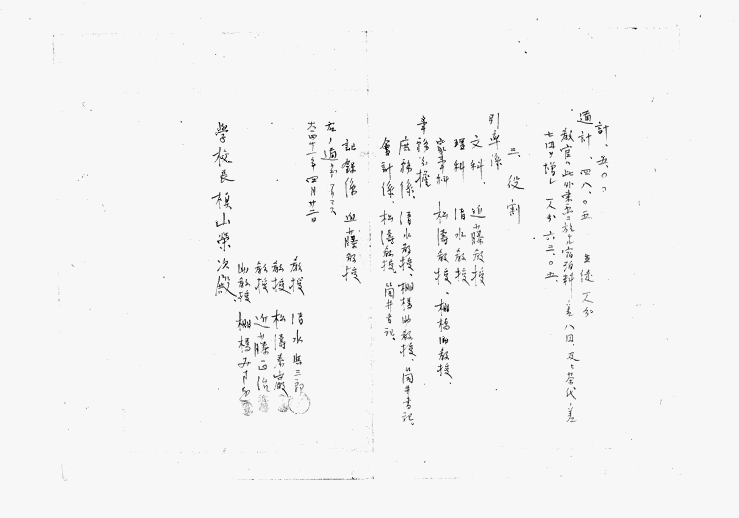 計、五、〇〇
通計、四八、〇五　生徒一人分
教官ハ此外東京ニ於ケル宿泊料ノ差八円、及ビ茶代ノ差
七円ヲ増シ一人分六三、〇五、
三、役割
引率係
文科、近藤教授
理科　清水教授
家事科　松濤教授、棚橋助教授、
事務分擔
庶務係、清水教授、棚橋助教授、筒井書記、
會計係、松濤教授、筒井書記、
記録係　近藤教授
右ノ通
大正十一年四月廿二日
教授　清水
教授　松濤泰巖
教授　近藤正治
助教授　棚橋
學校長　槇山榮次殿